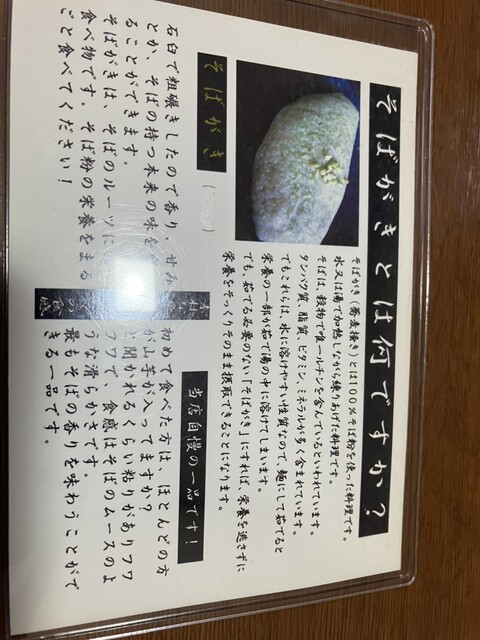 そばがきとは何ですか？
そばがき（蕎麦掻き）とは100％そば粉を使った料理です。
水又は湯で加熱しながら練りあげた料理です。
そばは、穀物で唯一ルチンを含んでいるといわれています。
タンパク質、脂質、ビタミン、ミネラルが多く含まれています。
でもこれらは、水に溶けやすい性質なので、麺にして茹でると
栄養の一部が茹で湯の中に溶けてしまいます。
でも、茹でる必要のない「そばがき」にすれば、栄養を逃さずに
栄養をそっくりそのまま摂取できることになります。
そばがき
石臼で粗碾きしたので香り、甘み
とか、そばの持つ本来の味を
ることができます。
そばがきは、そばのルーツに
食べ物です。そば粉の栄養をまる
ごと食べてください！
当店自慢の一品です！
初めて食べた方は、ほとんどの方
が山芋が入ってますか？
と聞かれるくらい粘りがありフワ
フワで、食感はそばのムースのよ
うな滑らかさです。
最もそばの香りを味わうことがで
きる一品です。